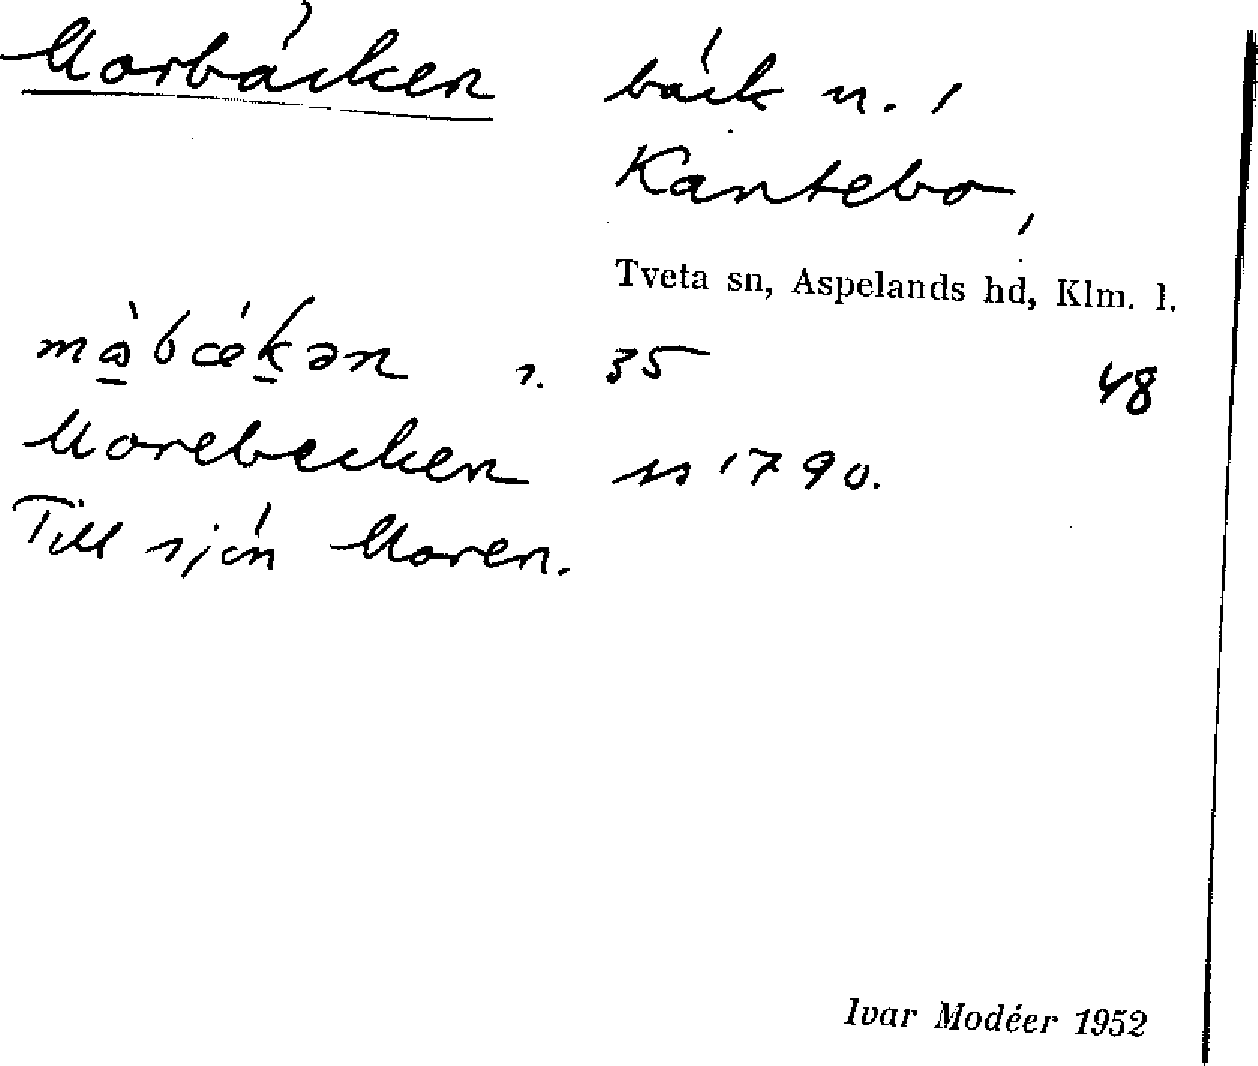 Morbäcken bäck n. i
Kantebo,
Tveta sn, Aspelands hd, Klm. l.
må̀bǽkən s. 35 48
Morebecken 1790.
Till sjön Moren.
Ivar Modéer 1952